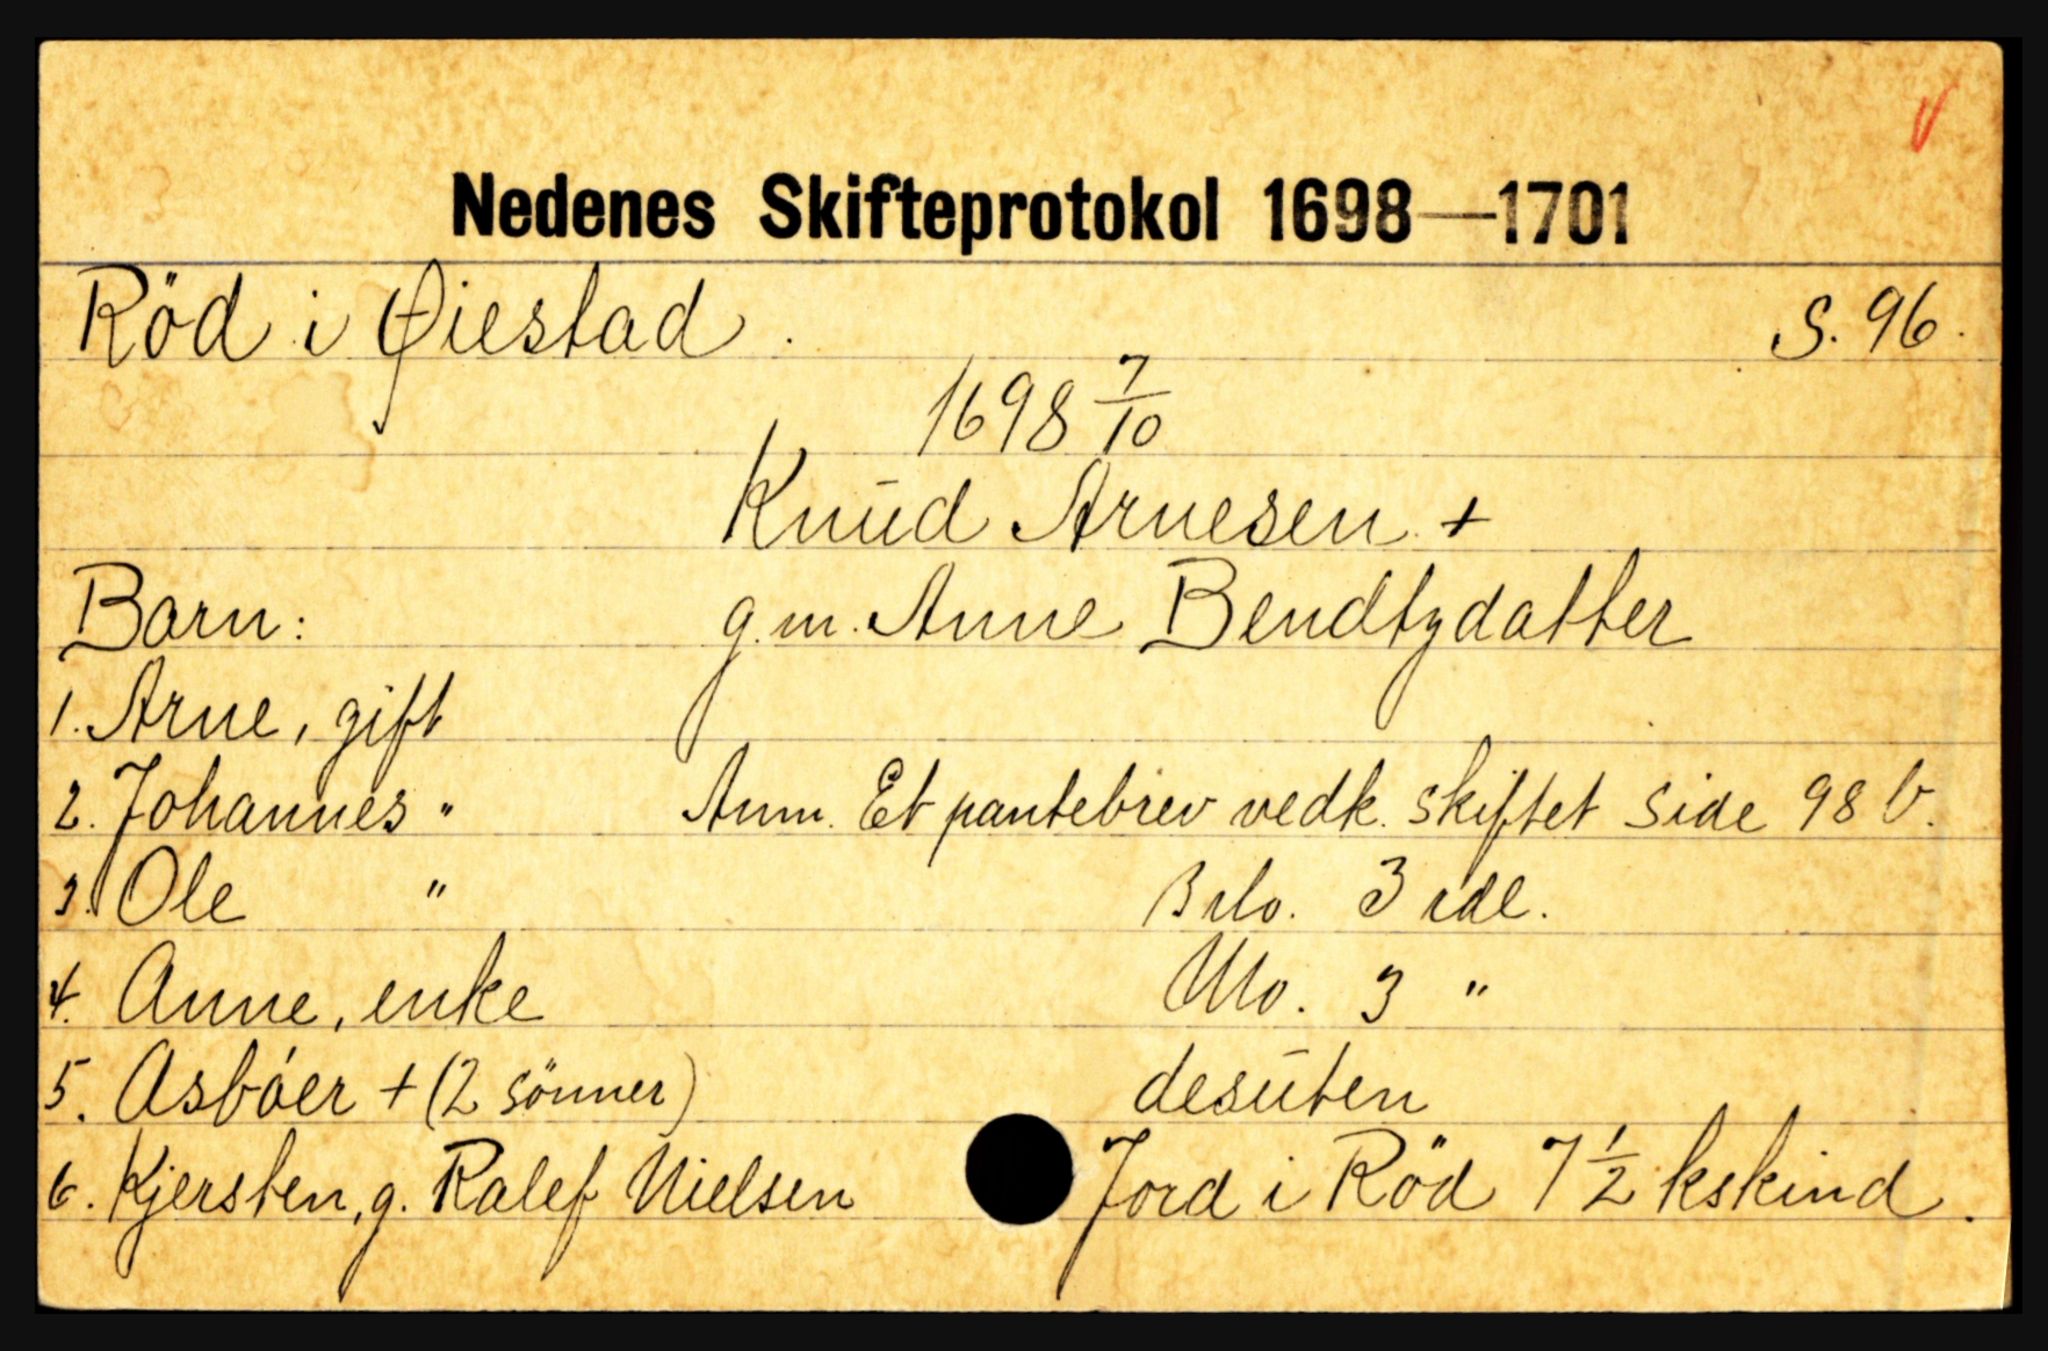 Nedenes Skifteprotokol 1698—1701
Röd i Øiestad. S. 96.
1698 7/10
Knud Arnesen +
Barn: g.m. Anne Bendtzdatter
1. Arne, gift
2. Johannes " Anm. Et pantebrev vedk. skiftet side 98 b.
3. Ole " Blo. 3 rdl.
4. Anne, enke Nlo. 3 "
5. Asbóer + (2 sönner) desuten
6. Kjersten, g. Ralef Nielsen Jord i Röd 7 1/2 kskind.